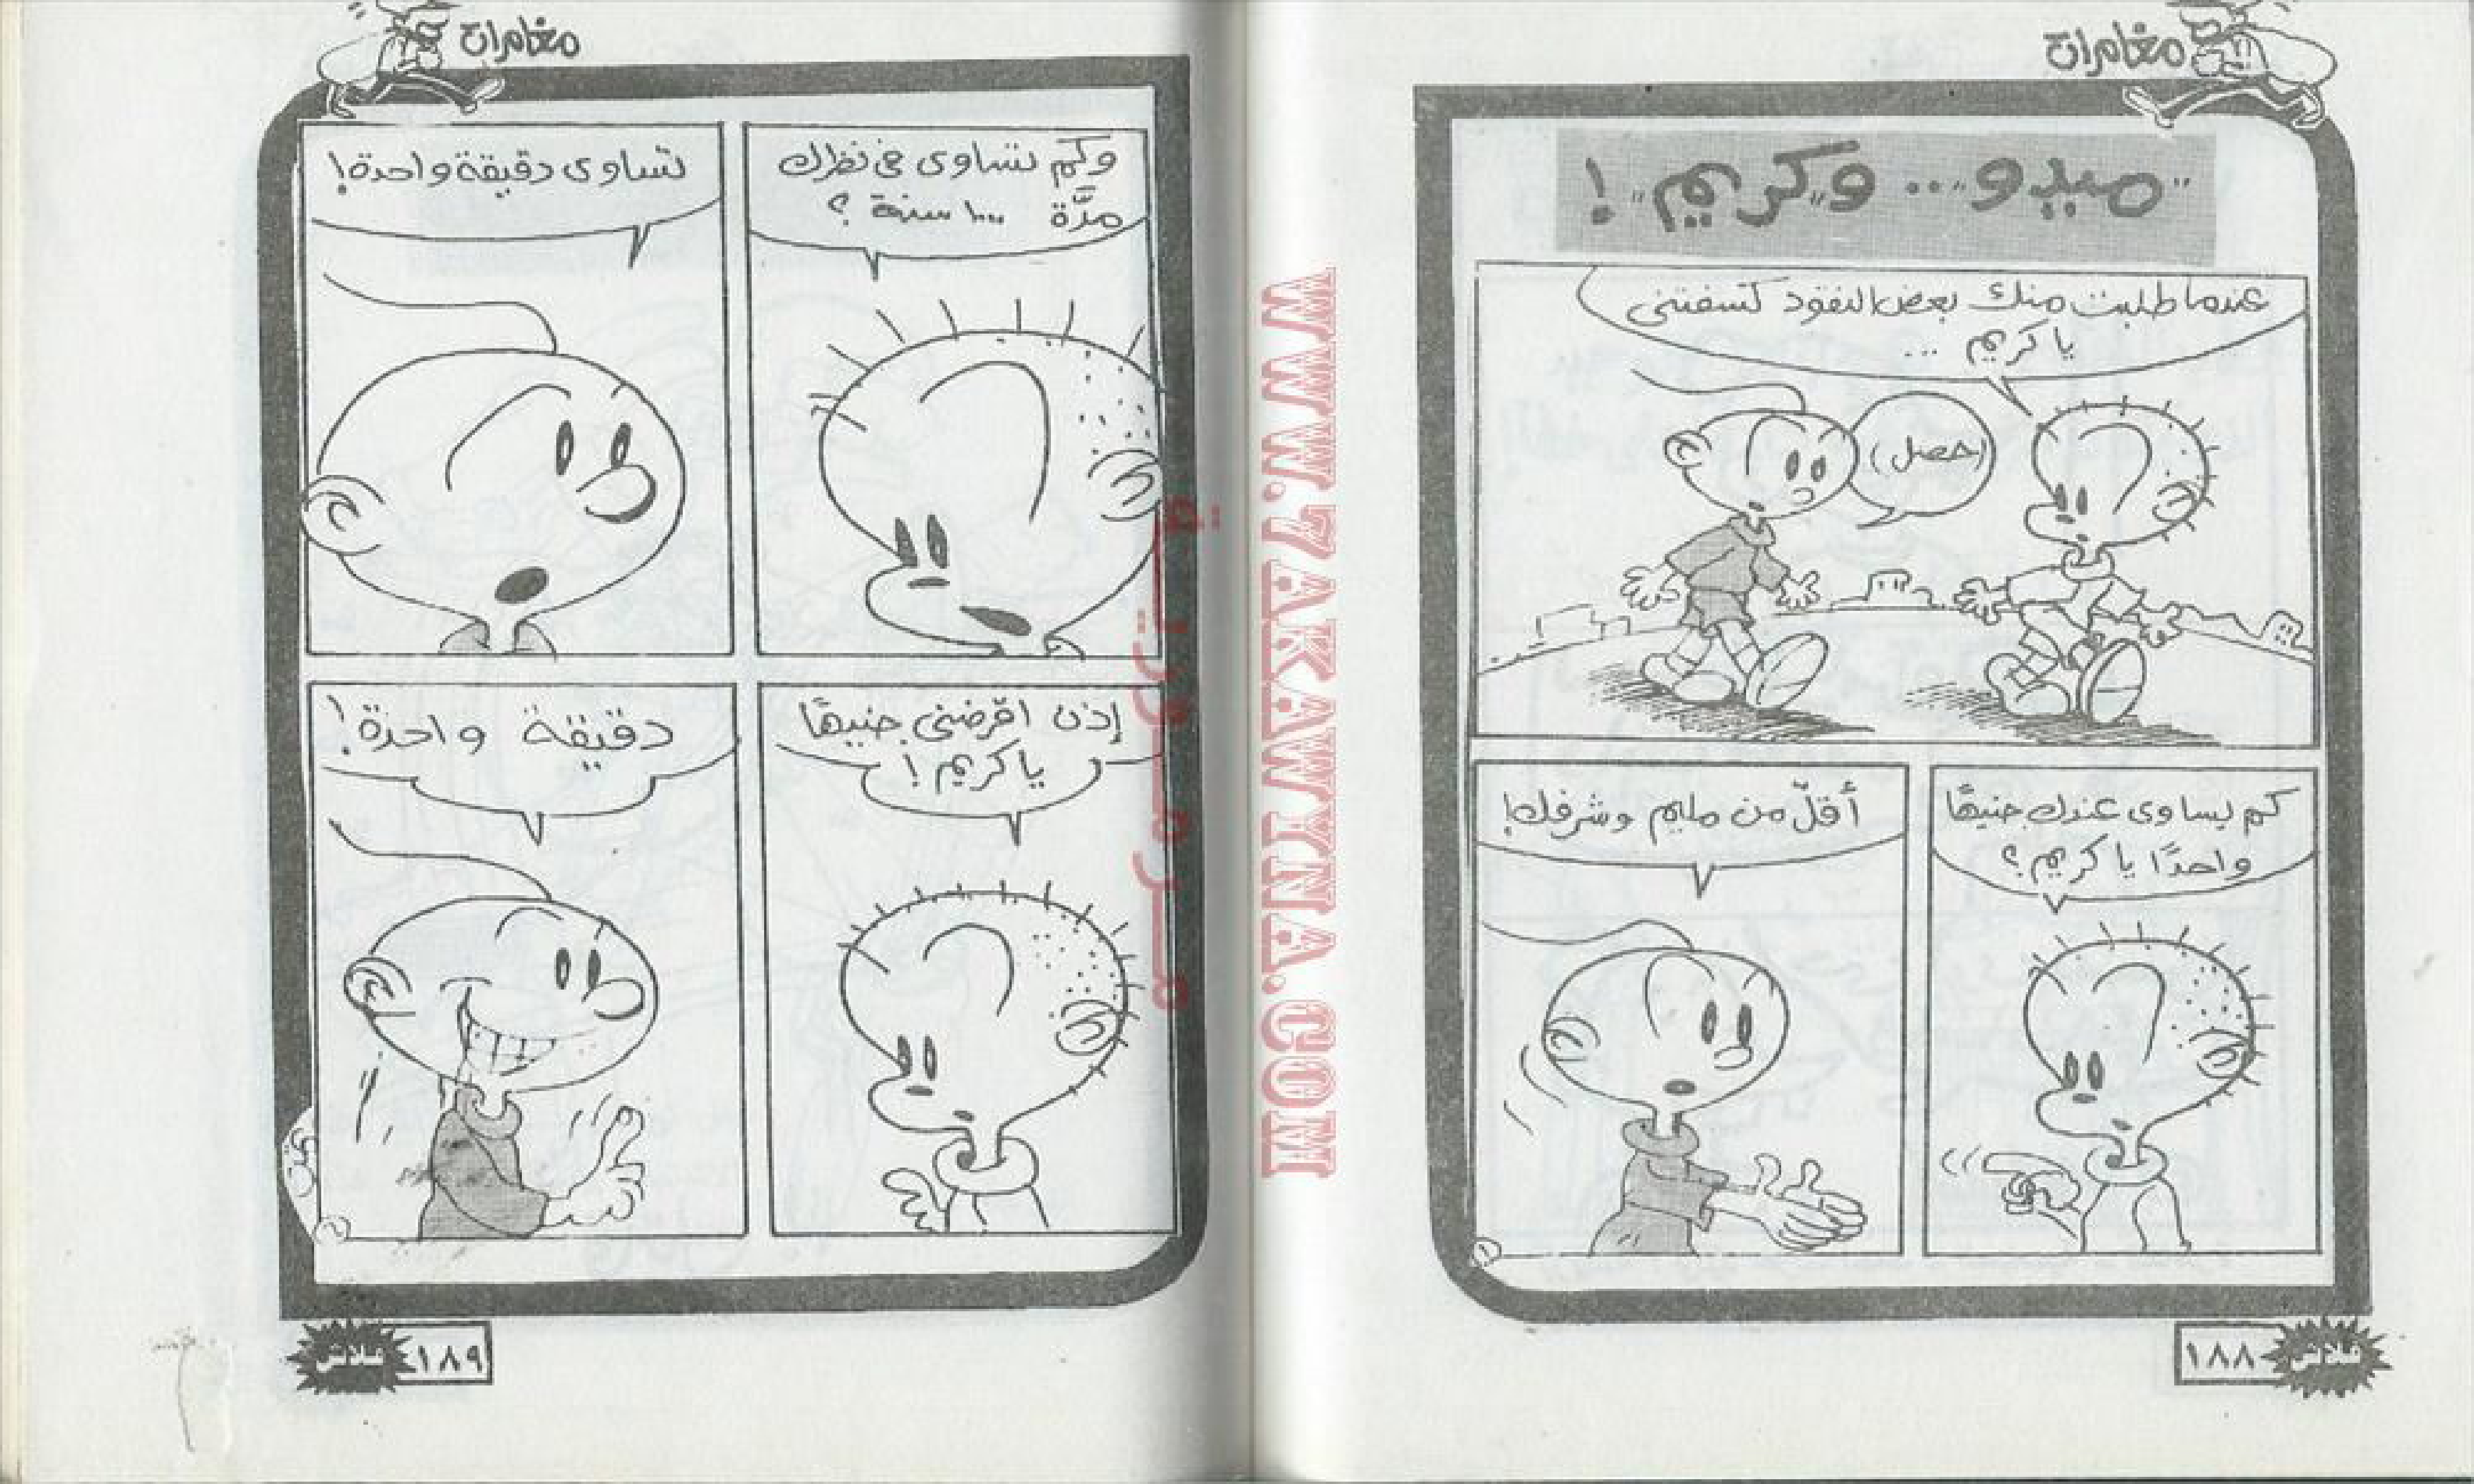 مغامرات
"ميدو"... و"كريم"!
عندما طلبت منك بعض النقود كسفتنى
يا كريم ...
(حصل)
كم يساوى عندك جنيهًا
واحدًا يا كريم؟
أقلّ من مليم وشرفك!
١٨٨
فلاش
مغامرات
وكم تساوى فى نظرك
مدَّة ١٠٠٠ سنة ؟
تساوى دقيقة واحدة!
إذن اقرضنى جنيهًا
يا كريم!
دقيقة واحدة!
١٨٩
فلاش
WWW.7AKAWITNA.COM